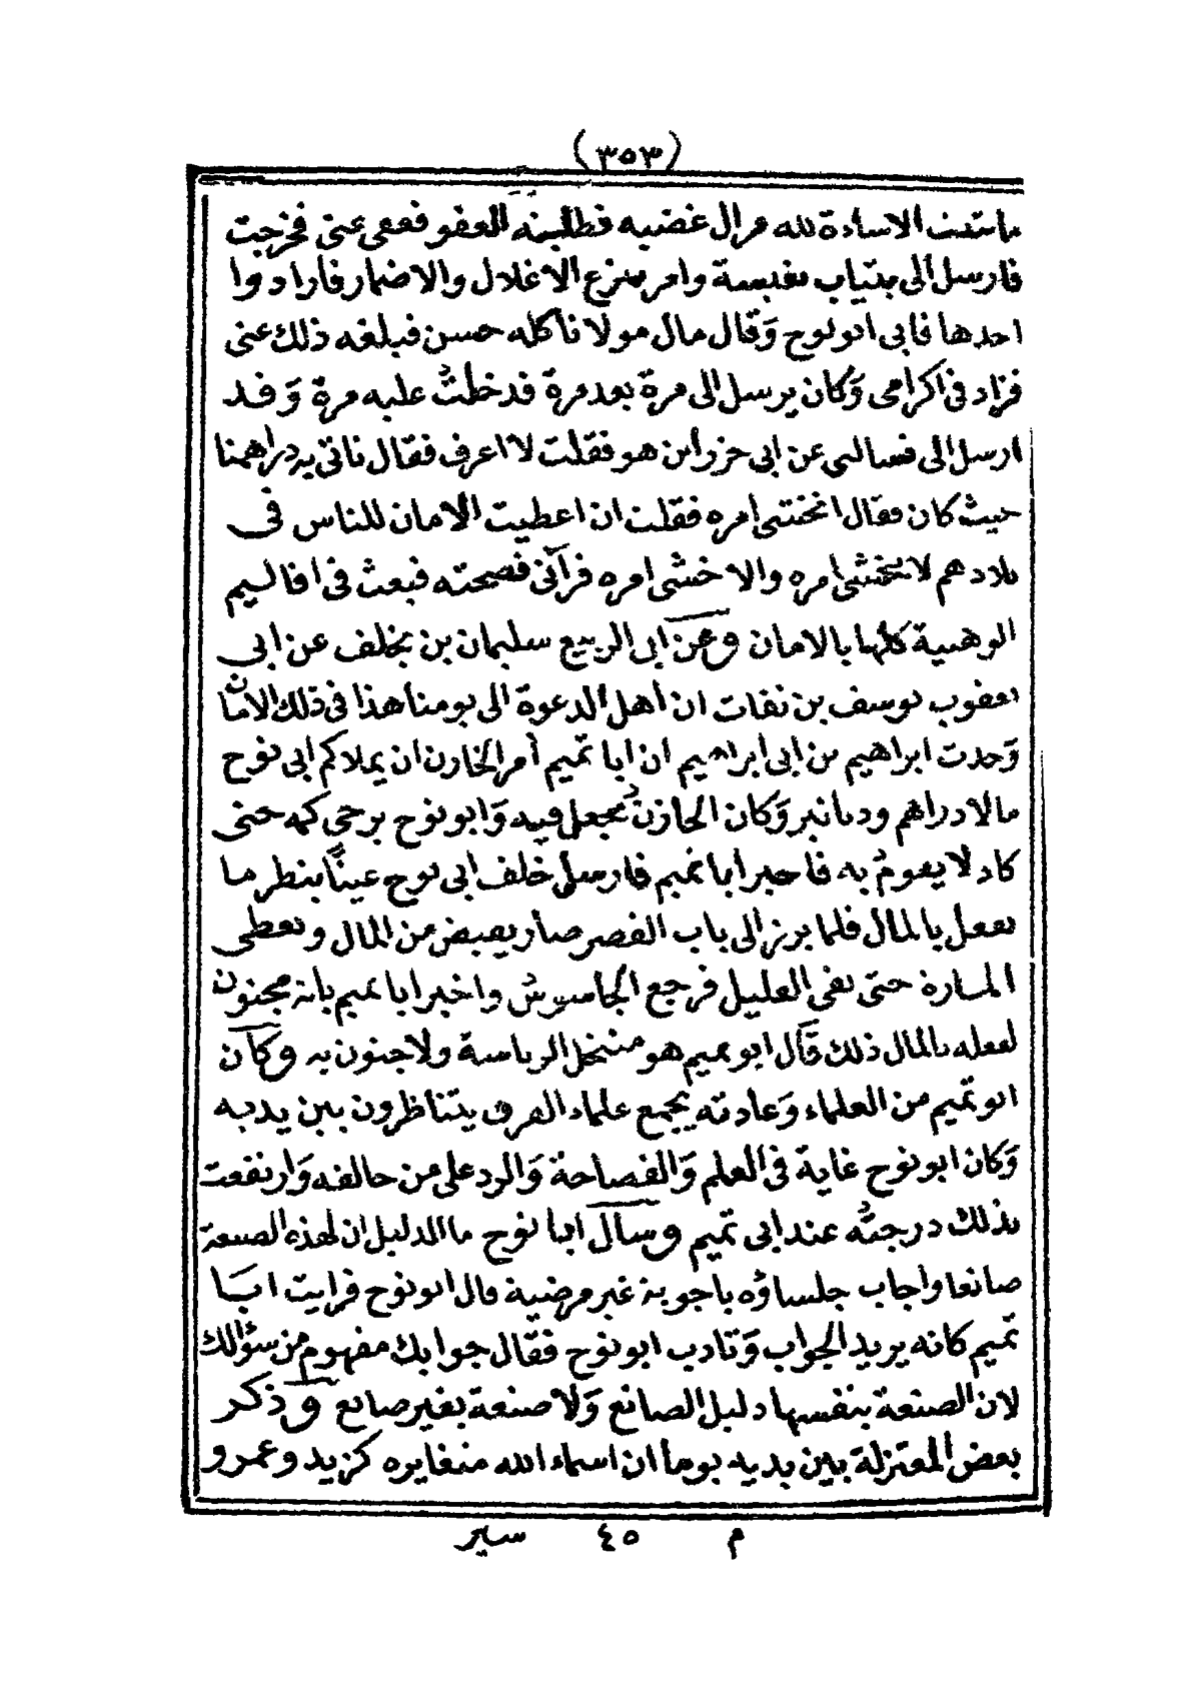 (٣٥٣)
ما تقدمت الاساءة لله فزال غضبه فطلبته العفو فعفى عنى فخرجت
فارسل الى بثياب نفيسة وامر بنزع الاغلال والاضمار فارادوا
اخدها فابى ابو نوح وقال مال مولانا كله حسن فبلغه ذلك عنى
فزاد فى اكرامى وكان يرسل الى مرة بعد مرة قد خلت عليه مرة وقد
ارسل الى فسالنى عن ابى خزر أين هو فقلت لا اعرف فقال ناتى يزدراهمنا
حيث كان فقال اتختشى امره فقلت ان اعطيت الامان للناس فى
بلادهم لا يختشى امره والا خشى امره فرآنى نصيحته فبعث فى اقاليم
الوهبية كلها بالامان وعن ابى الربيع سليمان بن يخلف عن ابى
يعقوب يوسف بن نفات ان أهل الدعوة الى يومنا هذا فى ذلك الامان
وحدث ابراهيم بن ابى ابراهيم ان ابا تميم أمر الخازن ان يملا كم ابى نوح
مالا دراهم ودنانير وكان الخازن يجعل فيه وابو نوح يرخى كمه حتى
كاد لا يقوم به فاخبر ابا تميم فارسل خلف ابى نوح عينا ينظر ما
يفعل بالمال فلما برز الى باب القصر صار يقبض من المال ويعطى
المسارة حتى بقى القليل فرجع الجاسوس واخبر ابا تميم بانه مجنون
لفعله بالمال ذلك قال ابو تميم هو منتخل الرياسة ولا جنون به وكان
ابو تميم من العلماء وعادته يجمع علماء الفرق يتناظرون بين يديه
وكان ابو نوح غاية فى العلم والفصاحة والرد على من خالفه وارتفعت
بذلك درجته عند ابى تميم وسأل ابا نوح ما الدليل ان لهذه الصنعة
صانعا واجاب جلساؤه باجوبة غير مرضية قال ابو نوح فرايت ابا
تميم كانه يريد الجواب وتادب ابو نوح فقال جوابك مفهوم من سؤالك
لان الصنعة بنفسها دليل الصانع ولا صنعة بغير صانع وذكر
بعض المعتزلة بين يديه يوما ان اسماء الله متغايره كزيد وعمرو
م ٤٥ سير